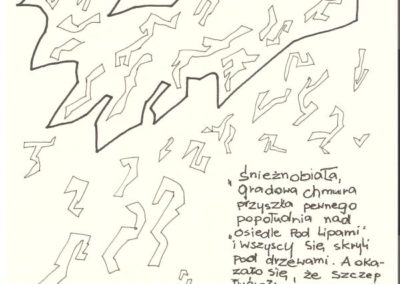 "śnieżnobiała,
gradowa chmura
przyszła pewnego
popołudnia nad
"osiedle Pod Lipami"
i wszyscy się skryli
pod drzewami. A oka-
zało się, że Szczep